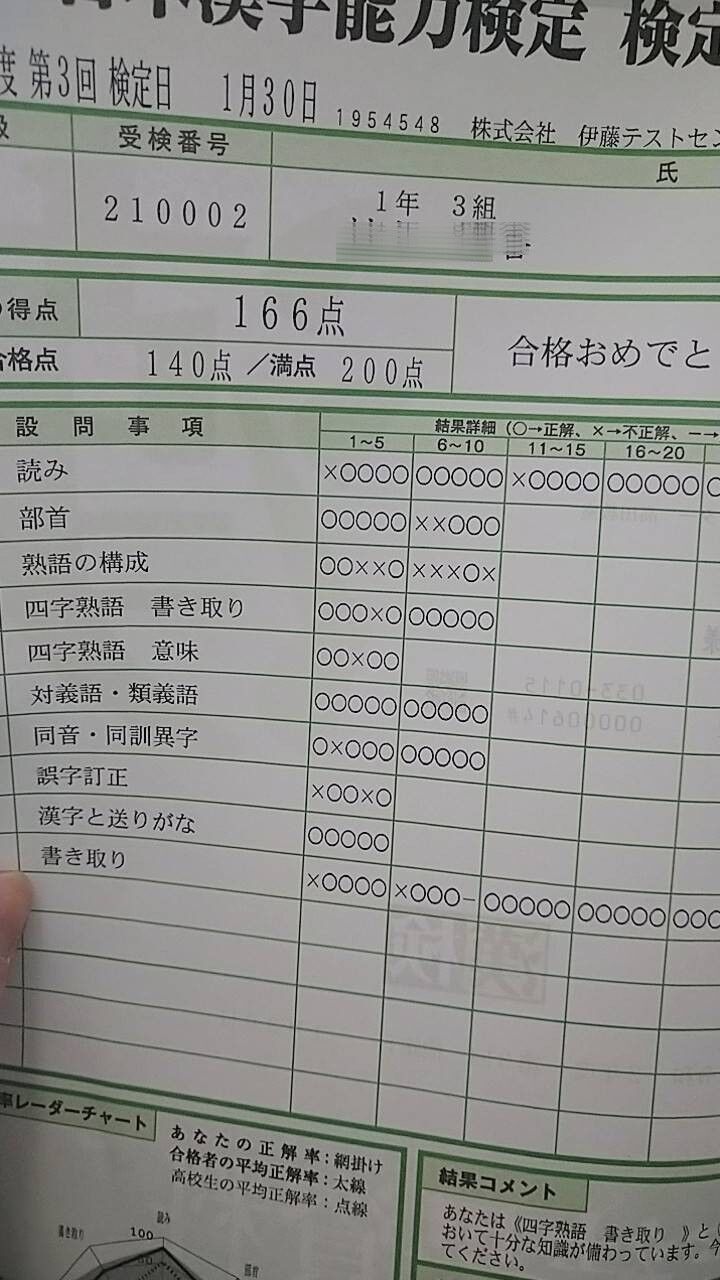 漢字能力検定 検定
度 第3回 検定日 1月30日 1954548 株式会社 伊藤テストセン
受検番号
氏
210002
1年 3組
得点 166点
合格点 140点 /満点 200点
合格おめでと
設問事項
結果詳細 (○→正解、×→不正解、ー→
1~5 6~10 11~15 16~20
読み ×○○○○ ○○○○○ ×○○○○ ○○○○○ ○
部首 ○○○○○ ××○○○
熟語の構成 ○○××○ ×××○×
四字熟語 書き取り ○○○×○ ○○○○○
四字熟語 意味 ○○×○○
対義語・類義語 ○○○○○ ○○○○○
同音・同訓異字 ○×○○○ ○○○○○
誤字訂正 ×○○×○
漢字と送りがな ○○○○○
書き取り ×○○○○ ×○○○- ○○○○○ ○○○○○ ○○○
率レーダーチャート
あなたの正解率:網掛け
合格者の平均正解率:太線
高校生の平均正解率:点線
読み
書き取り
100
結果コメント
あなたは《四字熟語 書き取り 》と
おいて十分な知識が備わっています。今
てください。